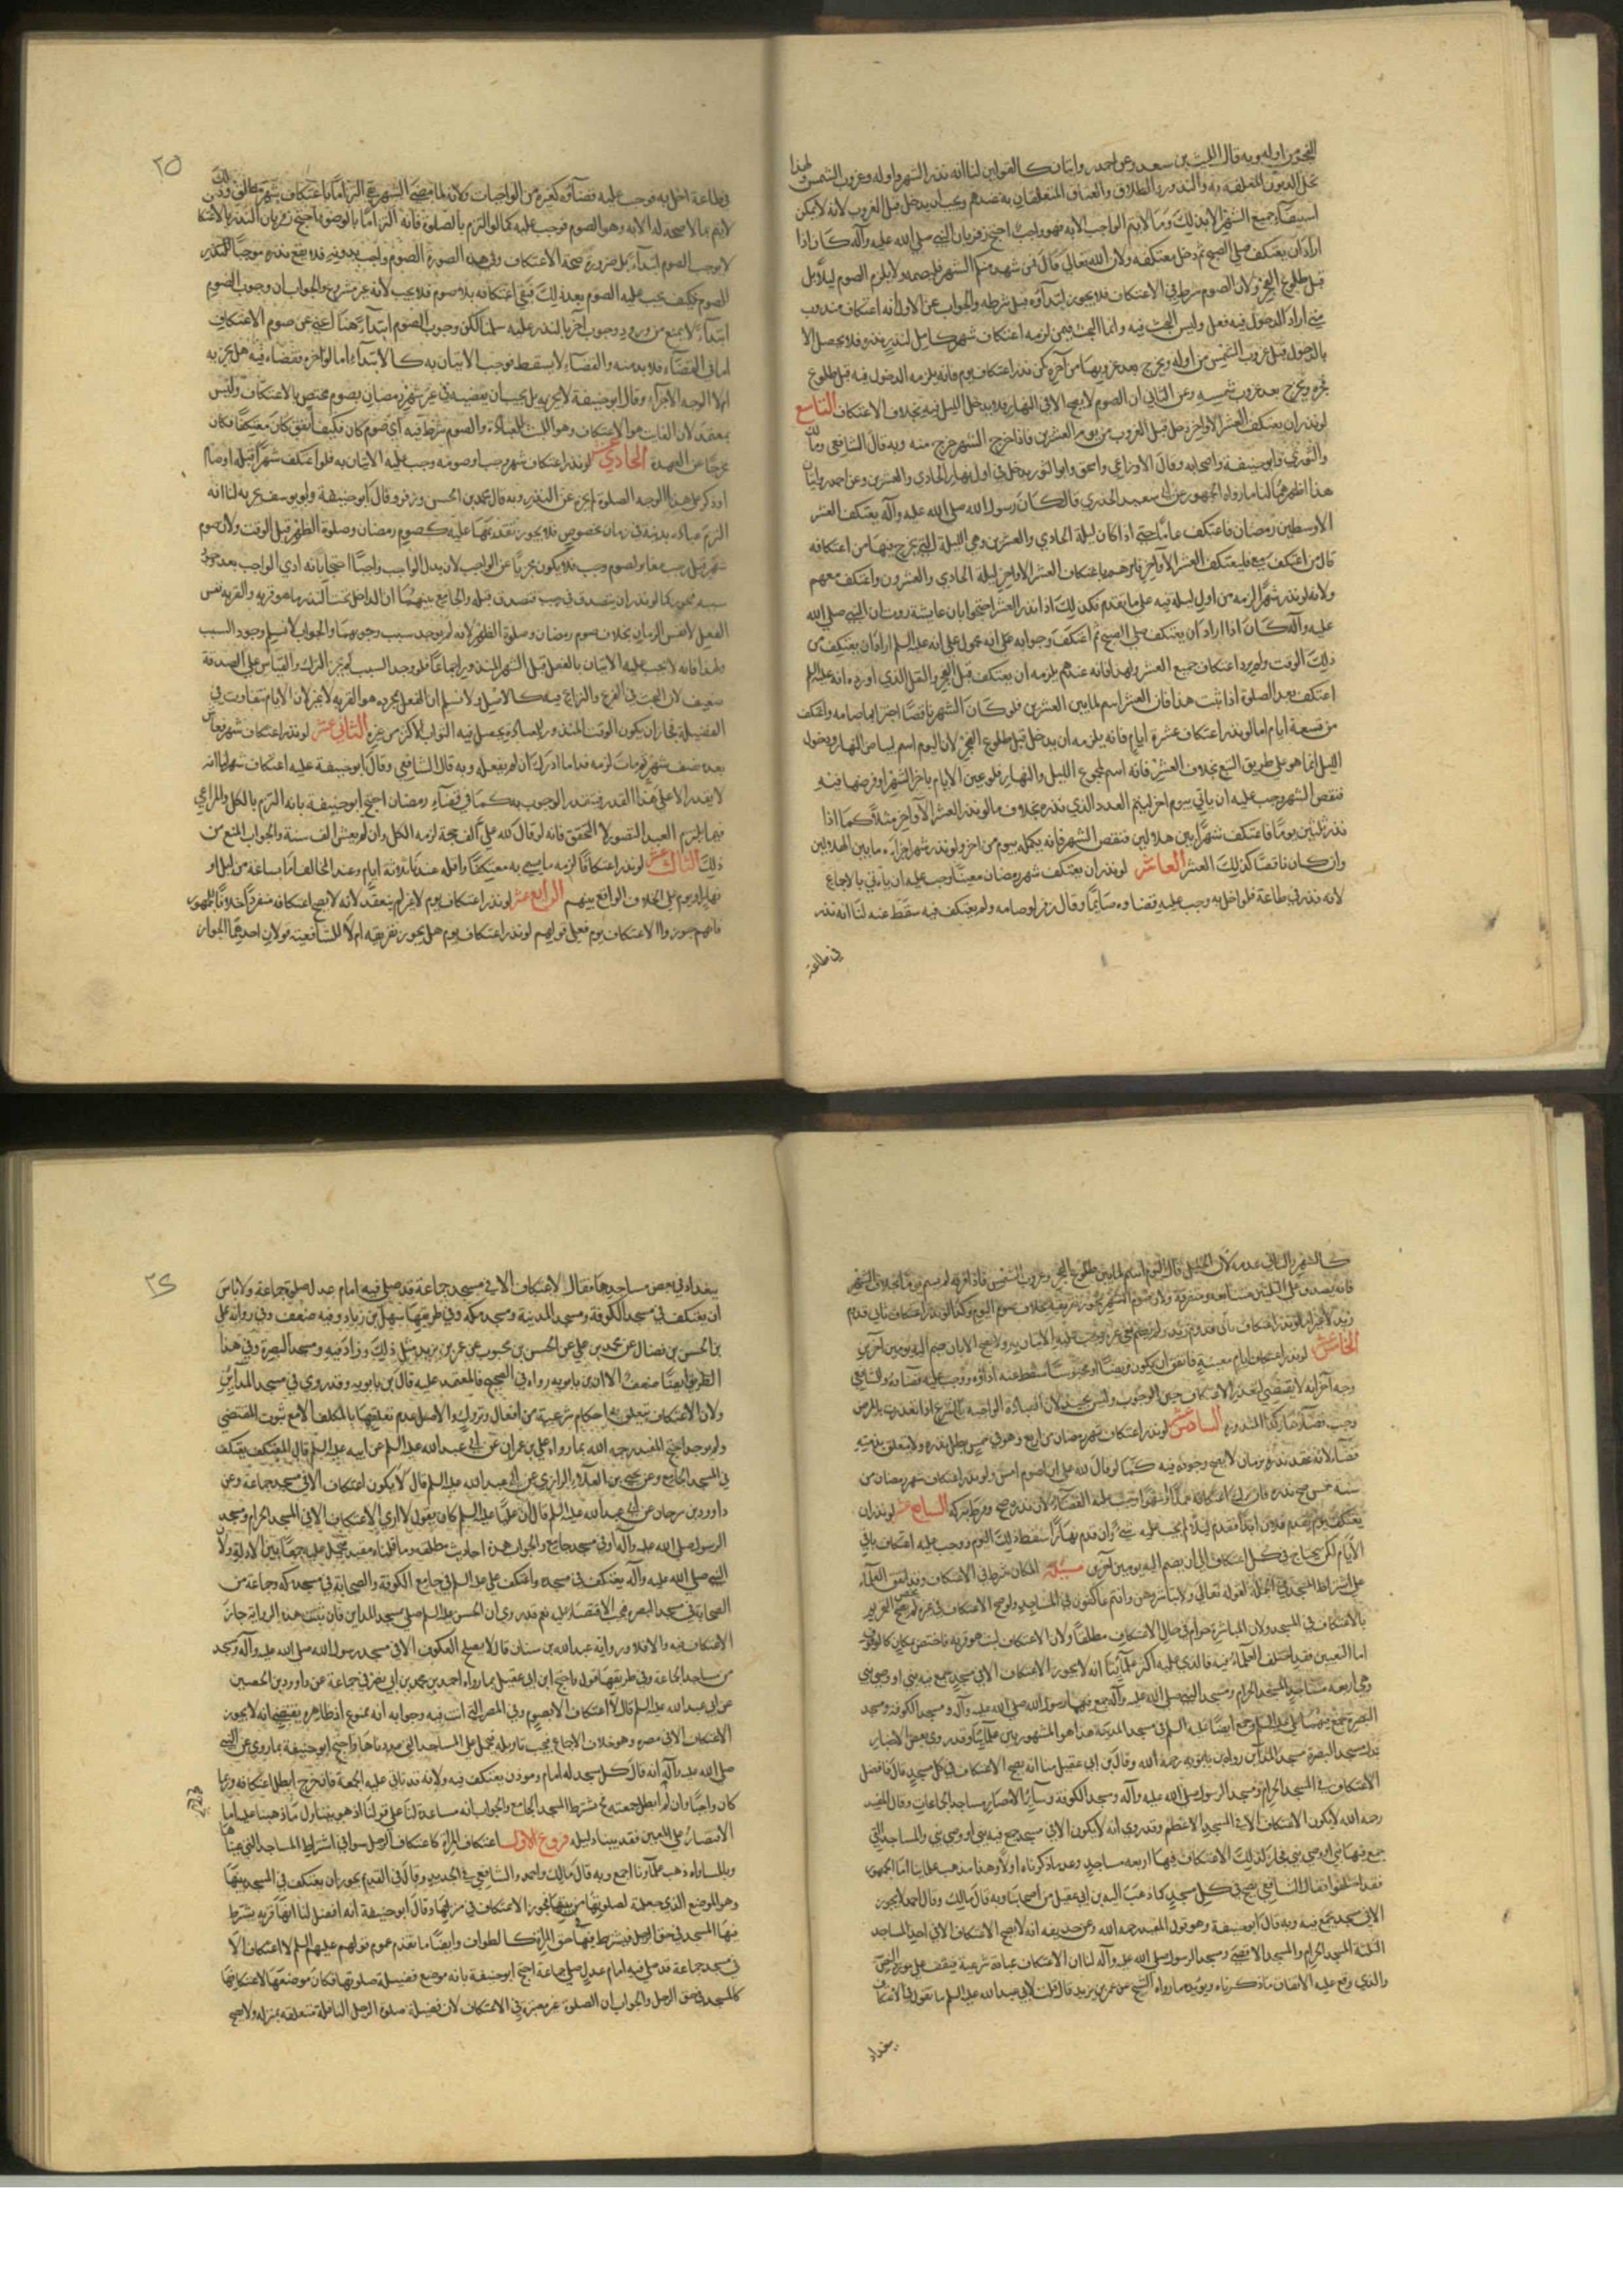 الفجر من اوله وبه قال الليث بن سعد وعن احمد روايتان كالقولين لنا انه نذر الشهر واوله وغروب الشمس ولهذا
تحل الديون المعلقة به والنذور والطلاق والعتاق المتعلقان به عندهم ويجب ان يدخل قبل الغروب لانه لا يمكن
استيفاء جميع الشهر الا بذلك وما لا يتم الواجب الا به فهو واجب احتج زفر بان النبي صلى الله عليه وآله كان اذا
اراد ان يعتكف صلى الصبح ثم دخل معتكفه ولان الله تعالى قال فمن شهد منكم الشهر فليصمه ولا يلزم الصوم ليلا بل
قبل طلوع الفجر ولان الصوم شرط في الاعتكاف فلا يجوز ابتداؤه قبل شرطه والجواب عن الاول انه اعتكاف مندوب
متى اراد الدخول فيه فعل وليس البحث فيه وانما البحث فيمن لزمه اعتكاف شهر كامل لنذر ونحوه فلا يحصل الا
بالدخول قبل غروب الشمس من اوله ويخرج بعد غروبها من آخره كمن نذر اعتكاف يوم فانه يلزمه الدخول فيه قبل طلوع
فجره ويخرج بعد غروب شمسه وعن الثاني ان الصوم لا يصح الا في النهار فلا يدخل الليل فيه بخلاف الاعتكاف التاسع
لو نذر ان يعتكف العشر الاواخر دخل قبل الغروب من يوم العشرين فاذا خرج الشهر خرج منه وبه قال الشافعي ومالك
والثوري وابو حنيفة واصحابه وقال الاوزاعي واسحق وابو الثور يدخل في اول نهار الحادي والعشرين وعن احمد روايتان
هذا اظهرهما لنا ما رواه الجمهور عن ابي سعيد الخدري قال كان رسول الله صلى الله عليه وآله يعتكف العشر
الاوسط من رمضان فاعتكف عاما حتى اذا كان ليلة الحادي والعشرين وهي الليلة التي يخرج فيها من اعتكافه
قال من اعتكف معي فليعتكف العشر الاواخر فامرهم باعتكاف العشر الاواخر ليلة الحادي والعشرون واعتكف معهم
ولانه لو نذر شهرا لزمه من اول ليلة فيه على ما تقدم فكذلك اذا نذر العشر احتجوا بان عايشة روت ان النبي صلى الله
عليه وآله كان اذا اراد ان يعتكف صلى الصبح ثم اعتكف وجوابه على انه محمول على انه عليه السلم اراد ان يعتكف من
ذلك الوقت ولم يرد اعتكاف جميع العشر ولهذا فانه عندهم يلزمه ان يعتكف قبل الفجر والنقل الذي اورده انه عليه السلم
اعتكف بعد الصلوة اذا ثبت هذا فان العشر اسم لما بين العشرين فلو كان الشهر ناقصا اجتزا بما صامه واعتكف
من تسعة ايام اما لو نذر اعتكاف عشرة ايام فانه يلزمه ان يدخل قبل طلوع الفجر لان اليوم اسم لبياض النهار ودخول
الليل انما هو على طريق التبع بخلاف العشر فانه اسم لمجموع الليل والنهار فلو عين الايام باخر الشهر او فرضها فيه
فنقص الشهر وجب عليه ان ياتي بيوم اخر ليتم العدد الذي نذره بخلاف ما لو نذر العشر الاواخر مثلا كما اذا
نذر ثلثين يوما فاعتكف شهرا بين هلالين فنقص الشهر فانه يكمله بيوم من اخر ولو نذر شهرا اجزاه ما بين الهلالين
وان كان ناقصا كذلك العشر العاشر لو نذر ان يعتكف شهر رمضان معينا وجب عليه ان ياتي بالاجماع
لانه نذر في طاعة فلو اخل به وجب عليه قضاؤه صائما وقال زفر لو صامه ولم يعتكف فيه سقط عنه لنا انه نذر
في طاعة
٢٥
في طاعة اخل به فوجب عليه قضاؤه كغيره من الواجبات ولانه لما مضى الشهر بقي التزاما باعتكاف شهر مطلق وذلك
لا يتم ما لا صحة له الا به وهو الصوم فوجب عليه كما لو التزم بالصلوة فانه التزاما بالوضوء احتج زفر بان النذر بالاعتكاف
لا يوجب الصوم ابتداء بل ضرورة صحة الاعتكاف وفي هذه الصورة الصوم واجب بدونه فلا يقع نذره موجبا للنذر
الصوم فكيف يجب عليه الصوم بعد ذلك فبقي اعتكافه بلا صوم فلا يجب لانه غير مشروع والجواب ان وجوب الصوم
ابتداء لا يمنع من ورود وجوب آخر بالنذر عليه سلمنا لكن وجوب الصوم ابتداء هنا اغنى عن صوم الاعتكاف
اما في القضاء فلا بد منه والقضاء لا يسقط فوجب الاتيان به كالابتداء اما لو اخره فقضاه فيه هل يجزيه
ام لا الوجه الاجزاء وقال ابو حنيفة لا يجزيه بل يجب ان يقضيه في غير شهر رمضان بصوم مختص بالاعتكاف وليس
بمعتمد لان الفايت هو الاعتكاف وهو اللبث للعبادة والصوم شرط فيه اي صوم كان فكيف اتفق كان معتكفا فكان
مخرجا عن العهدة الحادي عشر لو نذر اعتكاف شهر وجب وصومه وجب عليه الاتيان به فلو اعتكف شهرا قبله اوصام
اوذكر على هذا الوجه الصلوة اجزء عن النذر وبه قال محمد بن الحسن وزفر وقال ابو حنيفة وابو يوسف يجزيه لنا انه
التزم عبادة بدنية في زمان مخصوص فلا يجوز تقديمها عليه كصوم رمضان وصلوة الظهر قبل الوقت ولان صوم
الفعل لا نفس الزمان بخلاف صوم رمضان وصلوة الظهر لانه لم يوجد سبب وجوبهما والجواب لا نسلم وجود السبب
ولهذا فانه لا يجب عليه الاتيان بالفعل قبل الشهر المنذور اجماعا فلو وجد السبب لم يجز الترك والقياس على الصدقة
ضعيف لان البحث في الفرع والنزاع فيه كالاصل ولا نسلم ان الفعل بمجرده هو القربة لا غير لان الايام تتفاوت في
الفضيلة فجاز ان يكون الوقت المنذور للعبادة يحصل فيه الثواب لاكثر من غيره الثاني عشر لو نذر اعتكاف شهر فعاش
بعده نصف شهر ثم مات لزمه قدر ما ادرك ان لم يفعله وبه قال الشافعي وقال ابو حنيفة عليه اعتكاف شهر لنا انه
لا يقدر الا على هذا القدر فيتقدر الوجوب به كما في قضاء رمضان احتج ابو حنيفة بانه التزم بالكل والمراعي
فيما يلتزم العبد التصور لا التحقق فانه لو قال لله علي الف حجة لزمه الكل وان لم يعش الف سنة والجواب المنع من
ذلك الثالث عشر لو نذر اعتكافا لزمه ما يسمى به معتكفا واقله عندنا ثلاثة ايام وعند المخالف اما بساعة من ليل او
نهار او يوم على الخلاف الواقع بينهم الرابع عشر لو نذر اعتكاف يوم لا غير لم ينعقد لانه لا يصح اعتكافه منفردا خلافا للجمهور
فانهم جوزوا الاعتكاف يوم فعلى قولهم لو نذر اعتكاف يوم هل يجوز تفريقه ام لا للشافعية قولان احدهما الجواز
كالشهر والثاني عدمه لان الخليل قال اليوم اسم لما بين طلوع الفجر وغروب الشمس فاذا فرقه لم يسم يوما بخلاف الشهر
زيد لاجزاه لو نذر اعتكاف ثاني قدوم زيد ولم يضم غيره وجب عليه الاتيان به ولا يصح الا بان يضم اليه يومين آخرين
الخامس عشر لو نذر اعتكاف ايام معينة فاتفق ان يكون مريضا او محبوسا سقط عنه اداؤه ووجب عليه قضاؤه وللشافعي
وجه آخر انه لا يقضي لتعذر الاعتكاف حين الوجوب وليس بجيد لان العبادة الواجبة بالشرع اذا تعذرت بالمرض
وجب قضاؤها وكذا المنذورة السادس عشر لو نذر اعتكاف شهر رمضان من اربع وهو في خمس بطل نذره ولا يتعلق بذمته
قضاء لانه عقد نذره بزمان لا يصح وجوده فيه كما لو قال لله علي ان اصوم امس ولو نذر اعتكاف شهر رمضان من
سنة خمس صح نذره فان اخل اعتكافه عمدا او سهوا وجب عليه القضاء لان نذره صح وفرط بتركه السابع عشر لو نذر ان
يعتكف يوم يقدم فلان ابدا فقدم ليلا لم يجب عليه شيء وان قدم نهارا سقط ذلك اليوم ووجب عليه اعتكاف باقي
الايام لكن يحتاج في كل اعتكاف الى ان يضم اليه يومين آخرين مسئلة المكان شرط في الاعتكاف وقد اتفق العلماء
على اشتراط المسجد في الجملة لقوله تعالى ولا تباشروهن وانتم عاكفون في المساجد ولو صح الاعتكاف في غيره لم يخص التحريم
بالاعتكاف في المسجد ولان المباشرة حرام في حال الاعتكاف مطلقا ولان الاعتكاف لبث هو قربة فاختص بمكان كالوقوف
اما التعيين فقد اختلف العلماء فيه فالذي عليه اكثر علمائنا انه لا يجوز الاعتكاف الا في مسجد جمع فيه نبي او وصي نبي
وهي اربعة مساجد المسجد الحرام ومسجد النبي صلى الله عليه وآله جمع فيهما رسول الله صلى الله عليه وآله ومسجد الكوفة ومسجد
البصرة جمع فيهما علي عليه السلم وجمع ايضا عليه السلم في مسجد المدينة هذا هو المشهور بين علمائنا وقد روي في بعض الاخبار
بدل مسجد البصرة مسجد المداين رواه ابن بابويه رحمه الله وقال ابن ابي عقيل منا انه يصح الاعتكاف في كل مسجد قال وافضل
الاعتكاف في المسجد الحرام ومسجد الرسول صلى الله عليه وآله ومسجد الكوفة وسائر الامصار مساجد الجماعات وقال المفيد
رحمه الله لا يكون الاعتكاف الا في المسجد الاعظم وقد روي انه لا يكون الا في مسجد جمع فيه نبي او وصي نبي والمساجد التي
جمع فيها نبي او وصي نبي فجاز لذلك الاعتكاف فيها اربعة مساجد وعد ما ذكرناه اولا وهذا مذهب علمائنا اما الجمهور
فقد اختلفوا فقال الشافعي يصح في كل مسجد كما ذهب اليه ابن ابي عقيل من اصحابنا وبه قال مالك وقال احمد لا يجوز
الا في مسجد يجمع فيه وبه قال ابو حنيفة وهو قول المفيد رحمه الله وعن حذيفة انه لا يصح الاعتكاف الا في احد المساجد
الثلثة المسجد الحرام والمسجد الاقصى ومسجد الرسول صلى الله عليه وآله لنا ان الاعتكاف عبادة شرعية فيقف على مورد النص
والذي وقع عليه الاتفاق ما ذكرناه ويؤيده ما رواه الشيخ عن عمر بن يزيد قال قلت لابي عبد الله عليه السلم ما تقول في الاعتكاف
ببغداد
ببغداد في بعض مساجدها فقال لا اعتكاف الا في مسجد جماعة قد صلى فيه امام عدل صلوة جماعة ولا باس
ان يعتكف في مسجد الكوفة ومسجد المدينة ومسجد مكة وفي طريقها سهل بن زياد وفيه ضعف وفي رواية علي
بن الحسن بن فضال عن محمد بن علي عن الحسن بن محبوب عن عمر بن يزيد مثل ذلك وزاد فيه ومسجد البصرة وفي هذا
الطريق ايضا ضعف الا ان ابن بابويه رواه في الصحيح فالمعتمد عليه قال ابن بابويه وقد روي في مسجد المداين
ولان الاعتكاف يتعلق به احكام شرعية من افعال وتروك والاصل عدم تعلقها بالمكلف الا مع ثبوت المقتضي
ولم يوجد احتج المفيد رحمه الله بما رواه علي بن عمران عن ابي عبد الله عليه السلم عن ابيه عليه السلم قال المعتكف يعتكف
في المسجد الجامع وعن يحيى بن العلاء الرازي عن ابي عبد الله عليه السلم قال لا يكون اعتكاف الا في مسجد جماعة وعن
داوود بن سرحان عن ابي عبد الله عليه السلم قال ان عليا عليه السلم كان يقول لا ارى الاعتكاف الا في المسجد الحرام ومسجد
الرسول صلى الله عليه وآله او في مسجد جامع والجواب هذه احاديث مطلقة وما قلناه مقيد فيحمل عليه جمعا بين الادلة ولان
النبي صلى الله عليه وآله يعتكف في مسجده واعتكف علي عليه السلم في جامع الكوفة والصحابة في مسجد مكة وجماعة من
الصحابة في مسجد البصرة فيجب الاقتصار عليه نعم قد روي ان الحسن عليه السلم صلى بمسجد المداين فان ثبتت هذه الرواية جاز
الاعتكاف فيه والا فلا ورواية عبد الله بن سنان قال لا يصلح العكوف الا في مسجد رسول الله صلى الله عليه وآله او مسجد
من مساجد الجماعة وفي طريقها قول واحتج ابن ابي عقيل بما رواه احمد بن محمد بن ابي نصر في جماعة عن داوود بن الحصين
عن ابي عبد الله عليه السلم قال لا اعتكاف الا بصوم وفي المصر الذي انت فيه وجوابه انه ممنوع اذ ظاهره يقتضي انه لا يجوز
الاعتكاف الا في مصره وهو خلاف الاجماع فيجب تاويله فيحمل على المساجد التي عددناها واحتج ابو حنيفة بما روي عن النبي
صلى الله عليه وآله انه قال كل مسجد له امام ومؤذن يعتكف فيه ولانه قد تاتي عليه الجمعة فان خرج ابطل اعتكافه وربما
كان واجبا وان لم يخرج ابطل جمعته فيشترط المسجد الجامع والجواب انه مساعدة لنا على قولنا اذ هو يتناول ما ذهبنا عليه اما
الاقتصار على المعين فقد بينا دليله فروع الاول اعتكاف المراة كاعتكاف الرجل سواء في اشتراط المساجد التي عيناها
وبالمساواة ذهب علماؤنا اجمع وبه قال مالك واحمد والشافعي في الجديد وقال في القديم يجوز ان يعتكف في المسجد بيتها
وهو الموضع الذي جعلته لصلوتها من بيتها فيجوز الاعتكاف في منزلها وقال ابو حنيفة انه افضل لنا انها قربة يشترط
فيها المسجد في حق الرجل فيشترط فيها حق المراة كالطواف وايضا ما تقدم عموم قولهم عليهم السلم لا اعتكاف الا
في مسجد جماعة قد صلى فيه امام عدل صلوة جماعة احتج ابو حنيفة بانه موضع فضيلة صلوتها فكان موضع اعتكافها
كالمسجد في حق الرجل والجواب ان الصلوة غير معتبرة في الاعتكاف لان فضيلة صلوة الرجل النافلة متعلقة بمنزله ولا يصح